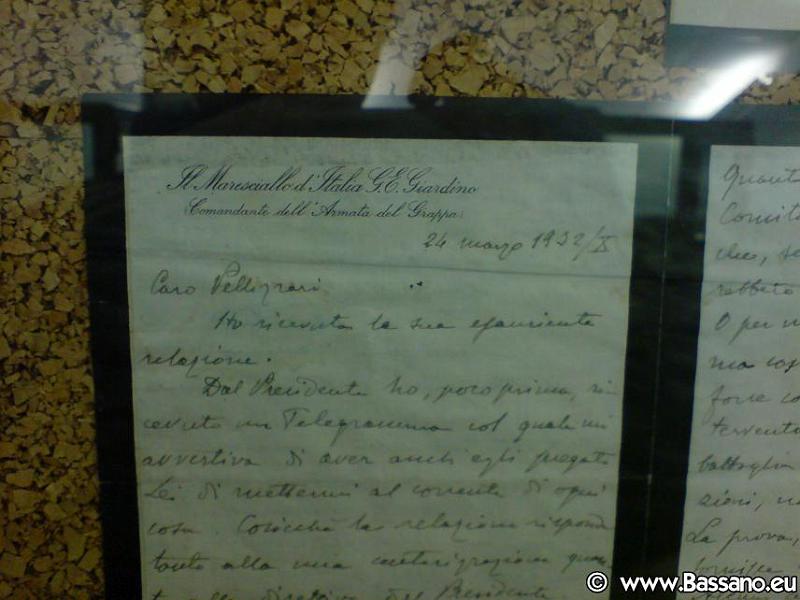 Il Maresciallo d'Italia G.E. Giardino
(Comandante dell'Armata del Grappa)
24 marzo 1932/X
Caro Pellizzari
Ho ricevuto la sua esauriente
relazione.
Dal Presidente ho, poco prima, ri
cevuto un Telegramma col quale mi
avvertiva di aver anch'egli pregato
Lei di mettermi al corrente di ogni
cosa. Cosicchè la relazione rispond
tanto alla mia quan
del Presidente
Quanto
Comitato
che, se
rebbero
O per m
ma cos
forse co
tervento
battaglia
zioni, no
La prova,
fornisce
© www.Bassano.eu